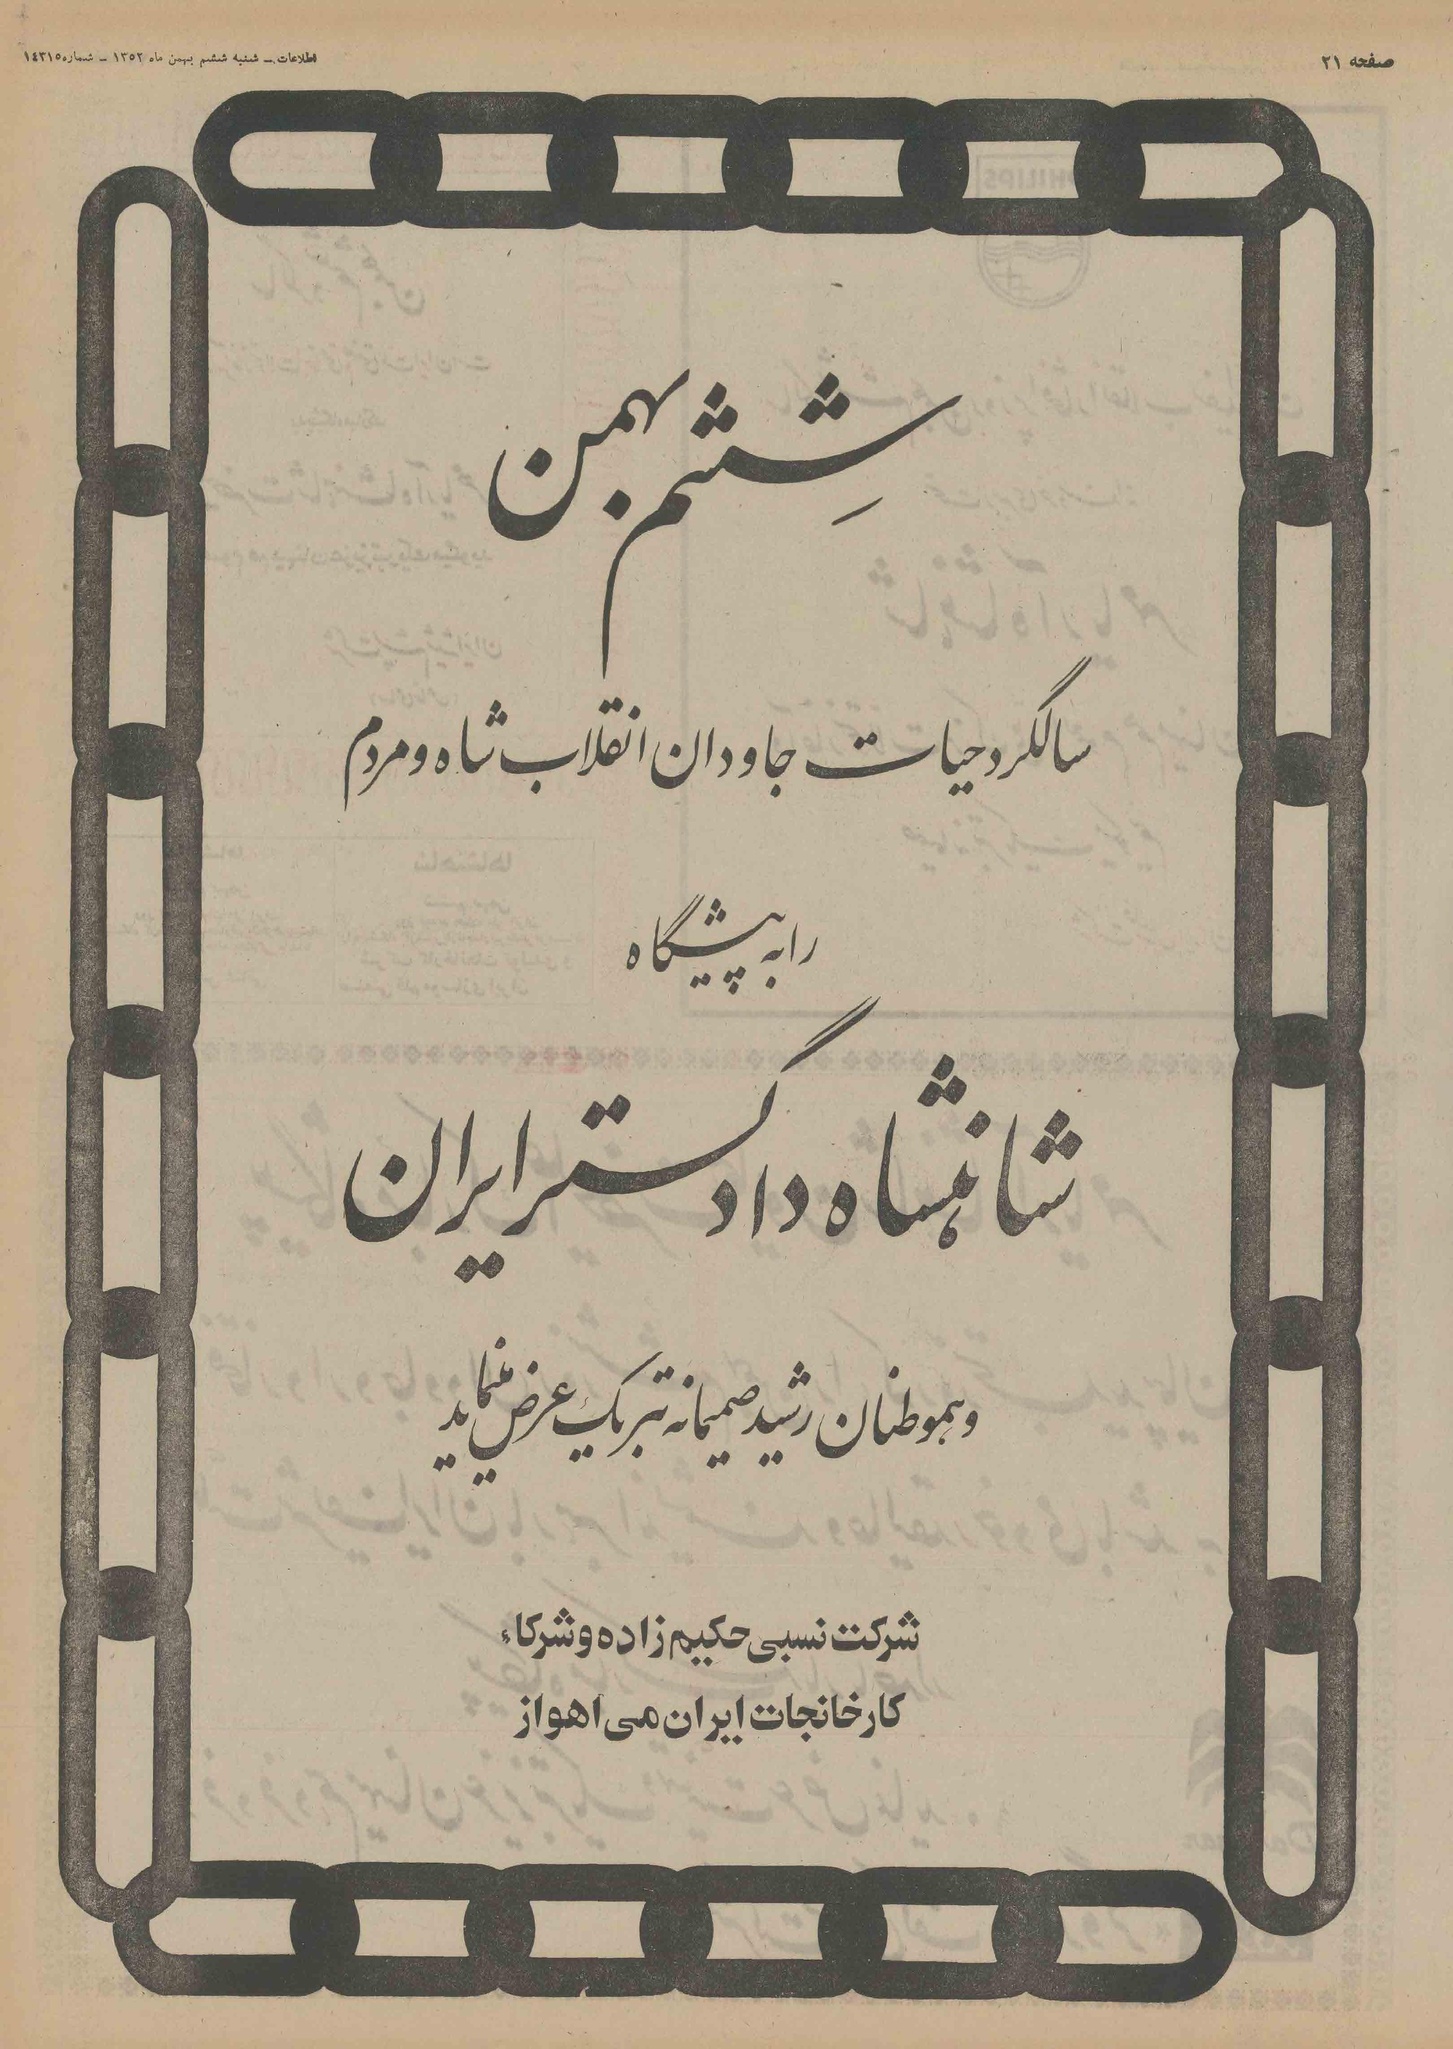 صفحه ۲۱
اطلاعات ـ شنبه ششم بهمن ماه ۱۳۵۲ ـ شماره ۱۴۳۱۵
ششم بهمن
سالگرد حیات جاودان انقلاب شاه و مردم
را به پیشگاه
شاهنشاه دادگستر ایران
و هموطنان رشید صمیمانه تبریک عرض مینماید
شرکت نسبی حکیم زاده و شرکاء
کارخانجات ایران می اهواز